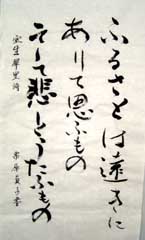 ふるさとは遠きに
ありて思ふもの
そして悲しくうたふもの
室生犀星詩